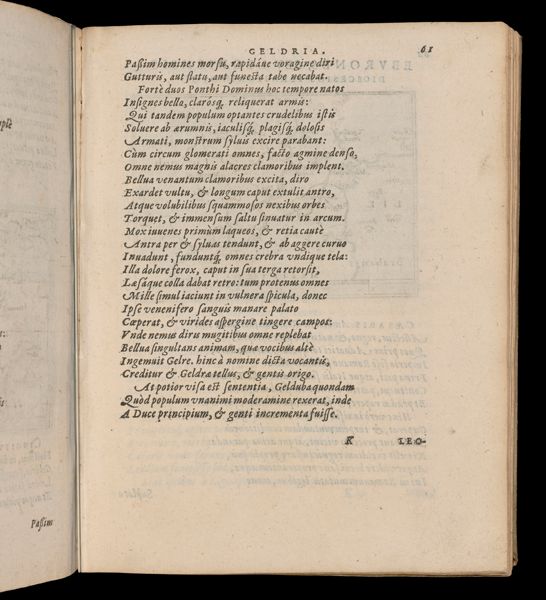 GELDRIA. 61
Paſsim homines morſu, rapidáue voragine diri
Gutturis, aut flatu, aut funeſta tabe necabat.
Fortè duos Ponthi Dominus hoc tempore natos
Inſignes bello, clarósq́; reliquerat armis:
Qui tandem populum optantes crudelibus iſtis
Soluere ab ærumnis, iaculiſq́; plagiſq́; doloſis
Armati, monſtrum ſyluis excire parabant:
Cùm circum glomerati omnes, facto agmine denſo,
Omne nemus magnis alacres clamoribus implent.
Bellua venantum clamoribus excita, diro
Exardet vultu, & longum caput extulit antro,
Atque volubilibus ſquammoſos nexibus orbes
Torquet, & immenſum ſaltu ſinuatur in arcum.
Mox iuuenes primùm laqueos, & retia cautè
Antra per & ſyluas tendunt, & ab aggere curuo
Inuadunt, funduntq́; omnes crebra vndique tela:
Illa dolore ferox, caput in ſua terga retorſit,
Læſáque colla dabat retro: tum protenus omnes
Mille ſimul iaciunt in vulnera ſpicula, donec
Ipſe venenifero ſanguis manare palato
Cœperat, & virides aſpergine tingere campos:
Vnde nemus diris mugitibus omne replebat
Bellua ſingultans animam, quæ vocibus altè
Ingemuit Gelre. hinc à nomine dicta vocantis,
Creditur & Geldræ tellus, & gentis origo.
At potior viſa eſt ſententia, Gelduba quondam
Quòd populum vnanimi moderamine rexerat, inde
A Duce principium, & genti incrementa fuiſſe.
K LEO-
Paſsim